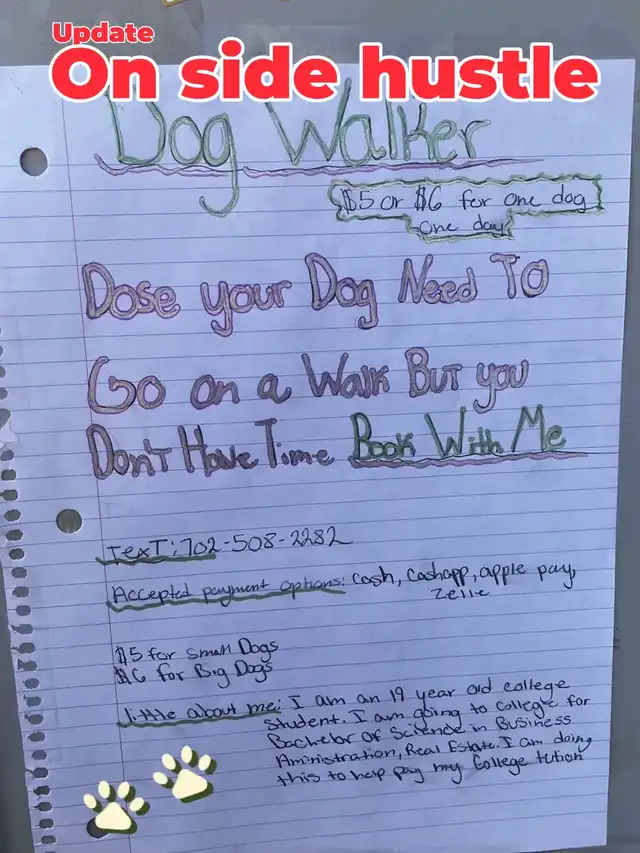 Update
On side hustle
Dog Walker
$5 or $6 for one dog
one day
Dose your Dog Need To
Go on a Walk But you
Don't Have Time Book With Me
Text: 702-508-2282
Accepted payment options: cash, cashapp, apple pay,
Zelle
$5 for small Dogs
$6 for Big Dogs
little about me: I am an 19 year old college
student. I am going to college for
Bachelor Of Science in Business
Aministration, Real Estate. I am doing
this to help pay my College tution